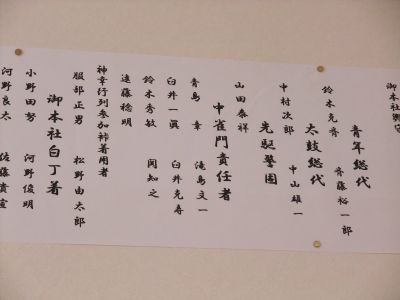 御本社
青年総代
齊藤裕一郎
鈴木克斉
太鼓総代
中山雄一
中村次郎
先駆警固
山田泰祥
中雀門責任者
青島幸 滝島文一
臼井一眞 臼井克寿
鈴木秀敏 関知之
遠藤稔明
神幸行列参加裃着用者
服部正男 松野由太郎
御本社白丁着
小野田努 河野俊明
河野良太 佐藤貴宣